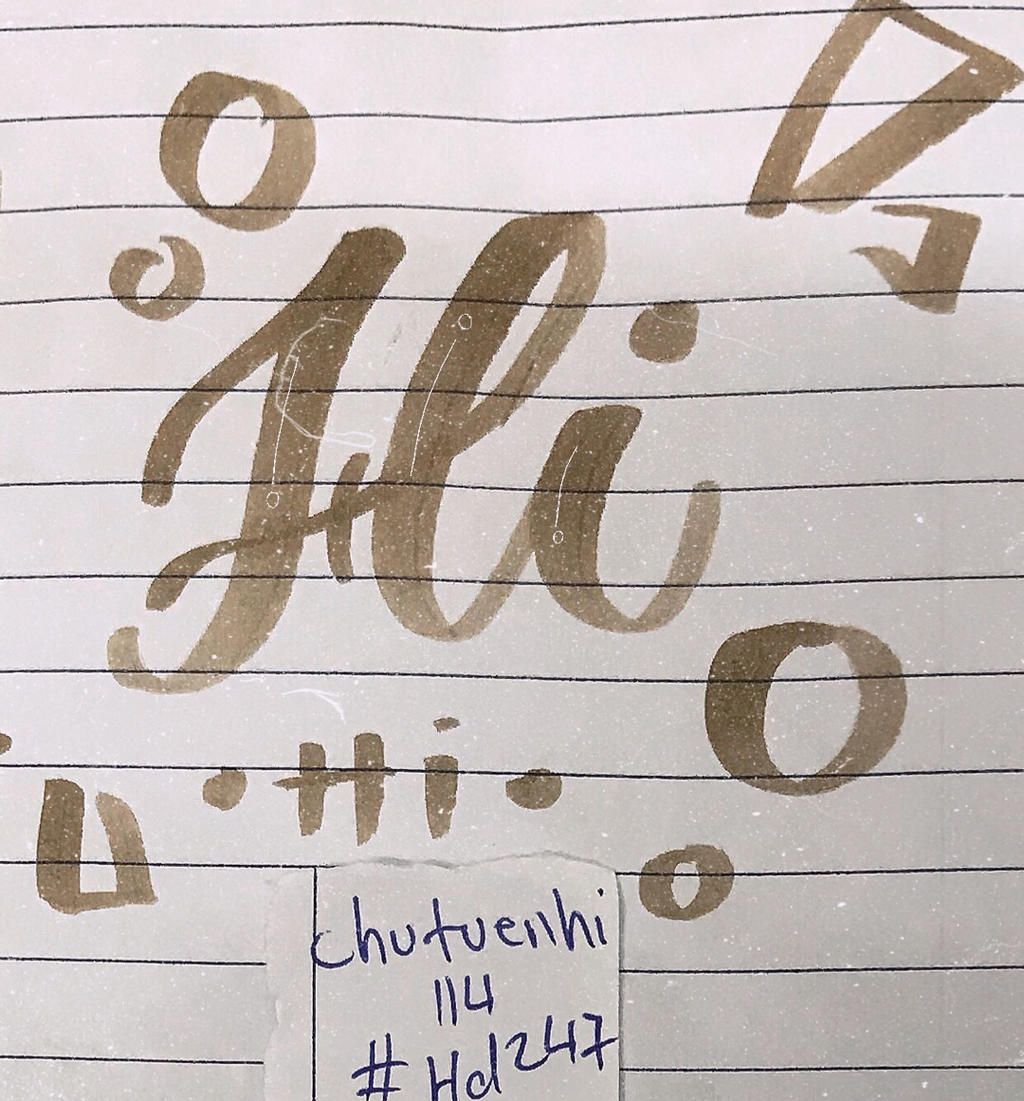 Hi
Hi
chutuenhi
114
#Hd247